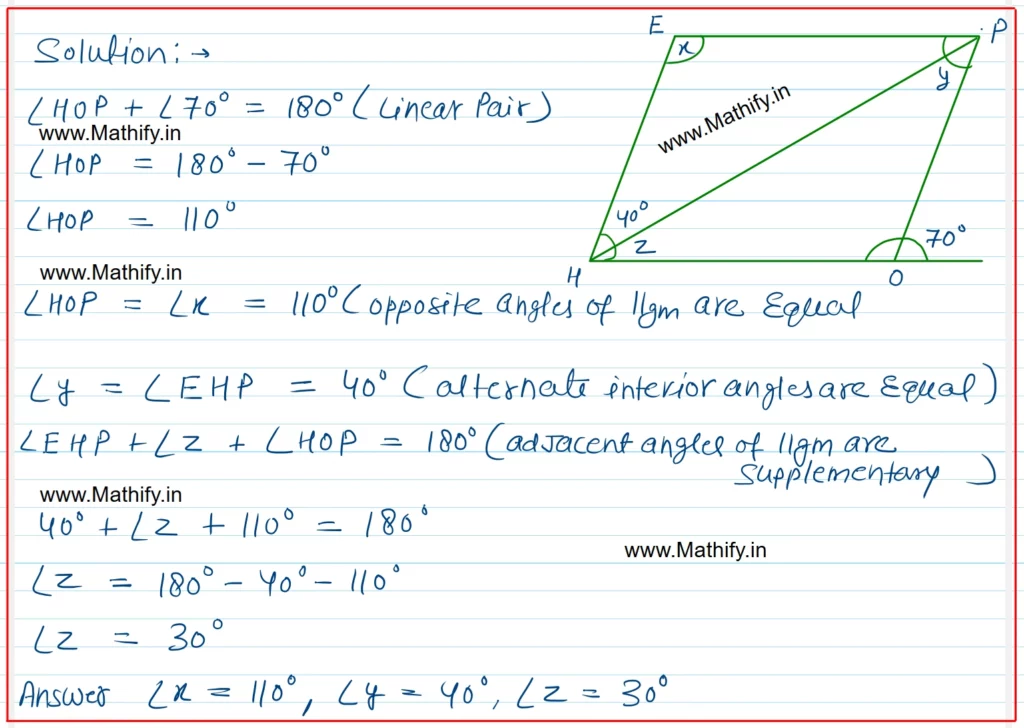 Solution:→
∠HOP + ∠70° = 180° (Linear Pair)
www.Mathify.in
∠HOP = 180° - 70°
∠HOP = 110°
www.Mathify.in
∠HOP = ∠x = 110° (opposite angles of ||gm are Equal
∠y = ∠EHP = 40° (alternate interior angles are Equal)
∠EHP + ∠z + ∠HOP = 180° (adjacent angles of ||gm are
supplementary)
www.Mathify.in
40° + ∠z + 110° = 180°
www.Mathify.in
∠z = 180° - 40° - 110°
∠z = 30°
Answer ∠x = 110°, ∠y = 40°, ∠z = 30°
E
P
x
y
www.Mathify.in
40°
z
70°
H
O